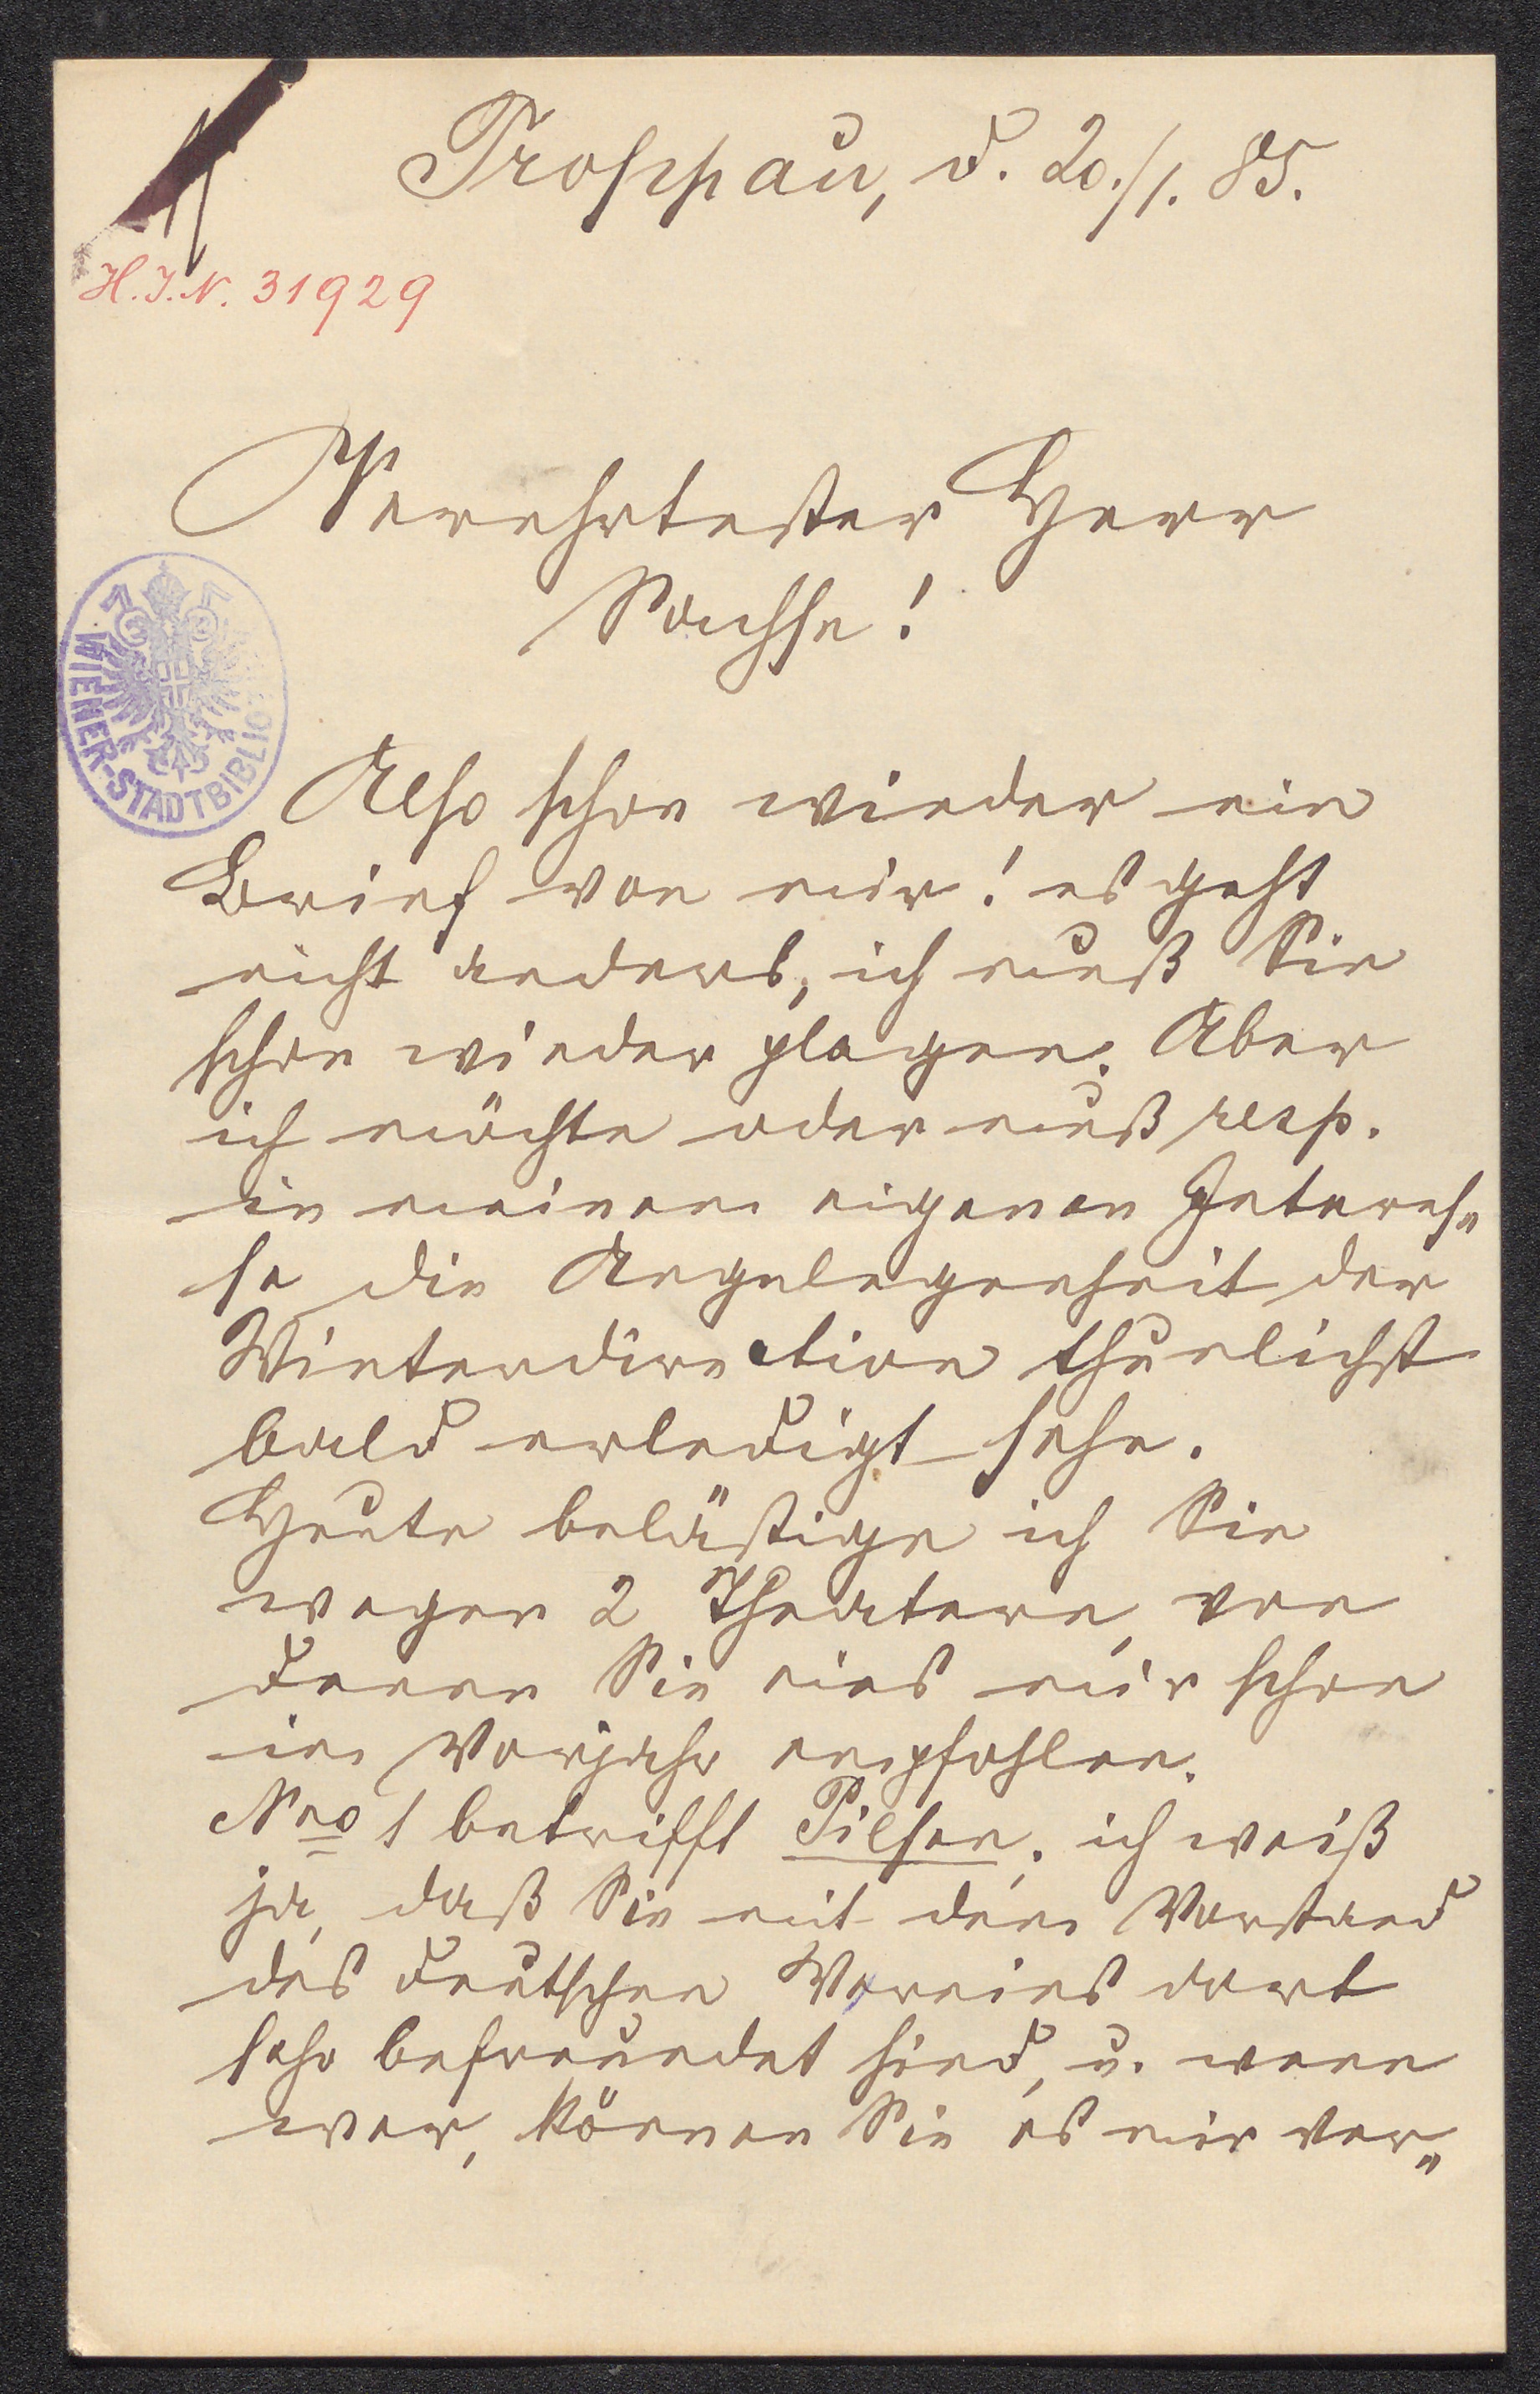 Troppau, d. 20./1. 85.
H.I.N. 31929
Verehrtester Herr
Sachse!
WIENER-STADTBIBLIO
Also schon wieder ein
Brief von mir! es geht
nicht anders, ich muß Sie
schon wieder plagen. Aber
ich möchte oder muß resp.
in meinem eigenen Interes„
se die Angelegenheit der
Winterdirection thunlichst
bald erledigt sehe.
Heute belästige ich Sie
wegen 2 Theatern, von
denen Sie eins mir schon
im Vorjahr empfohlen.
Nro 1 betrifft Pilsen. ich weiß
ja, daß Sie mit dem Vorstand
des deutschen Vereines dort
sehr befreundet sind, u. wenn
wer, können Sie es mir ver„